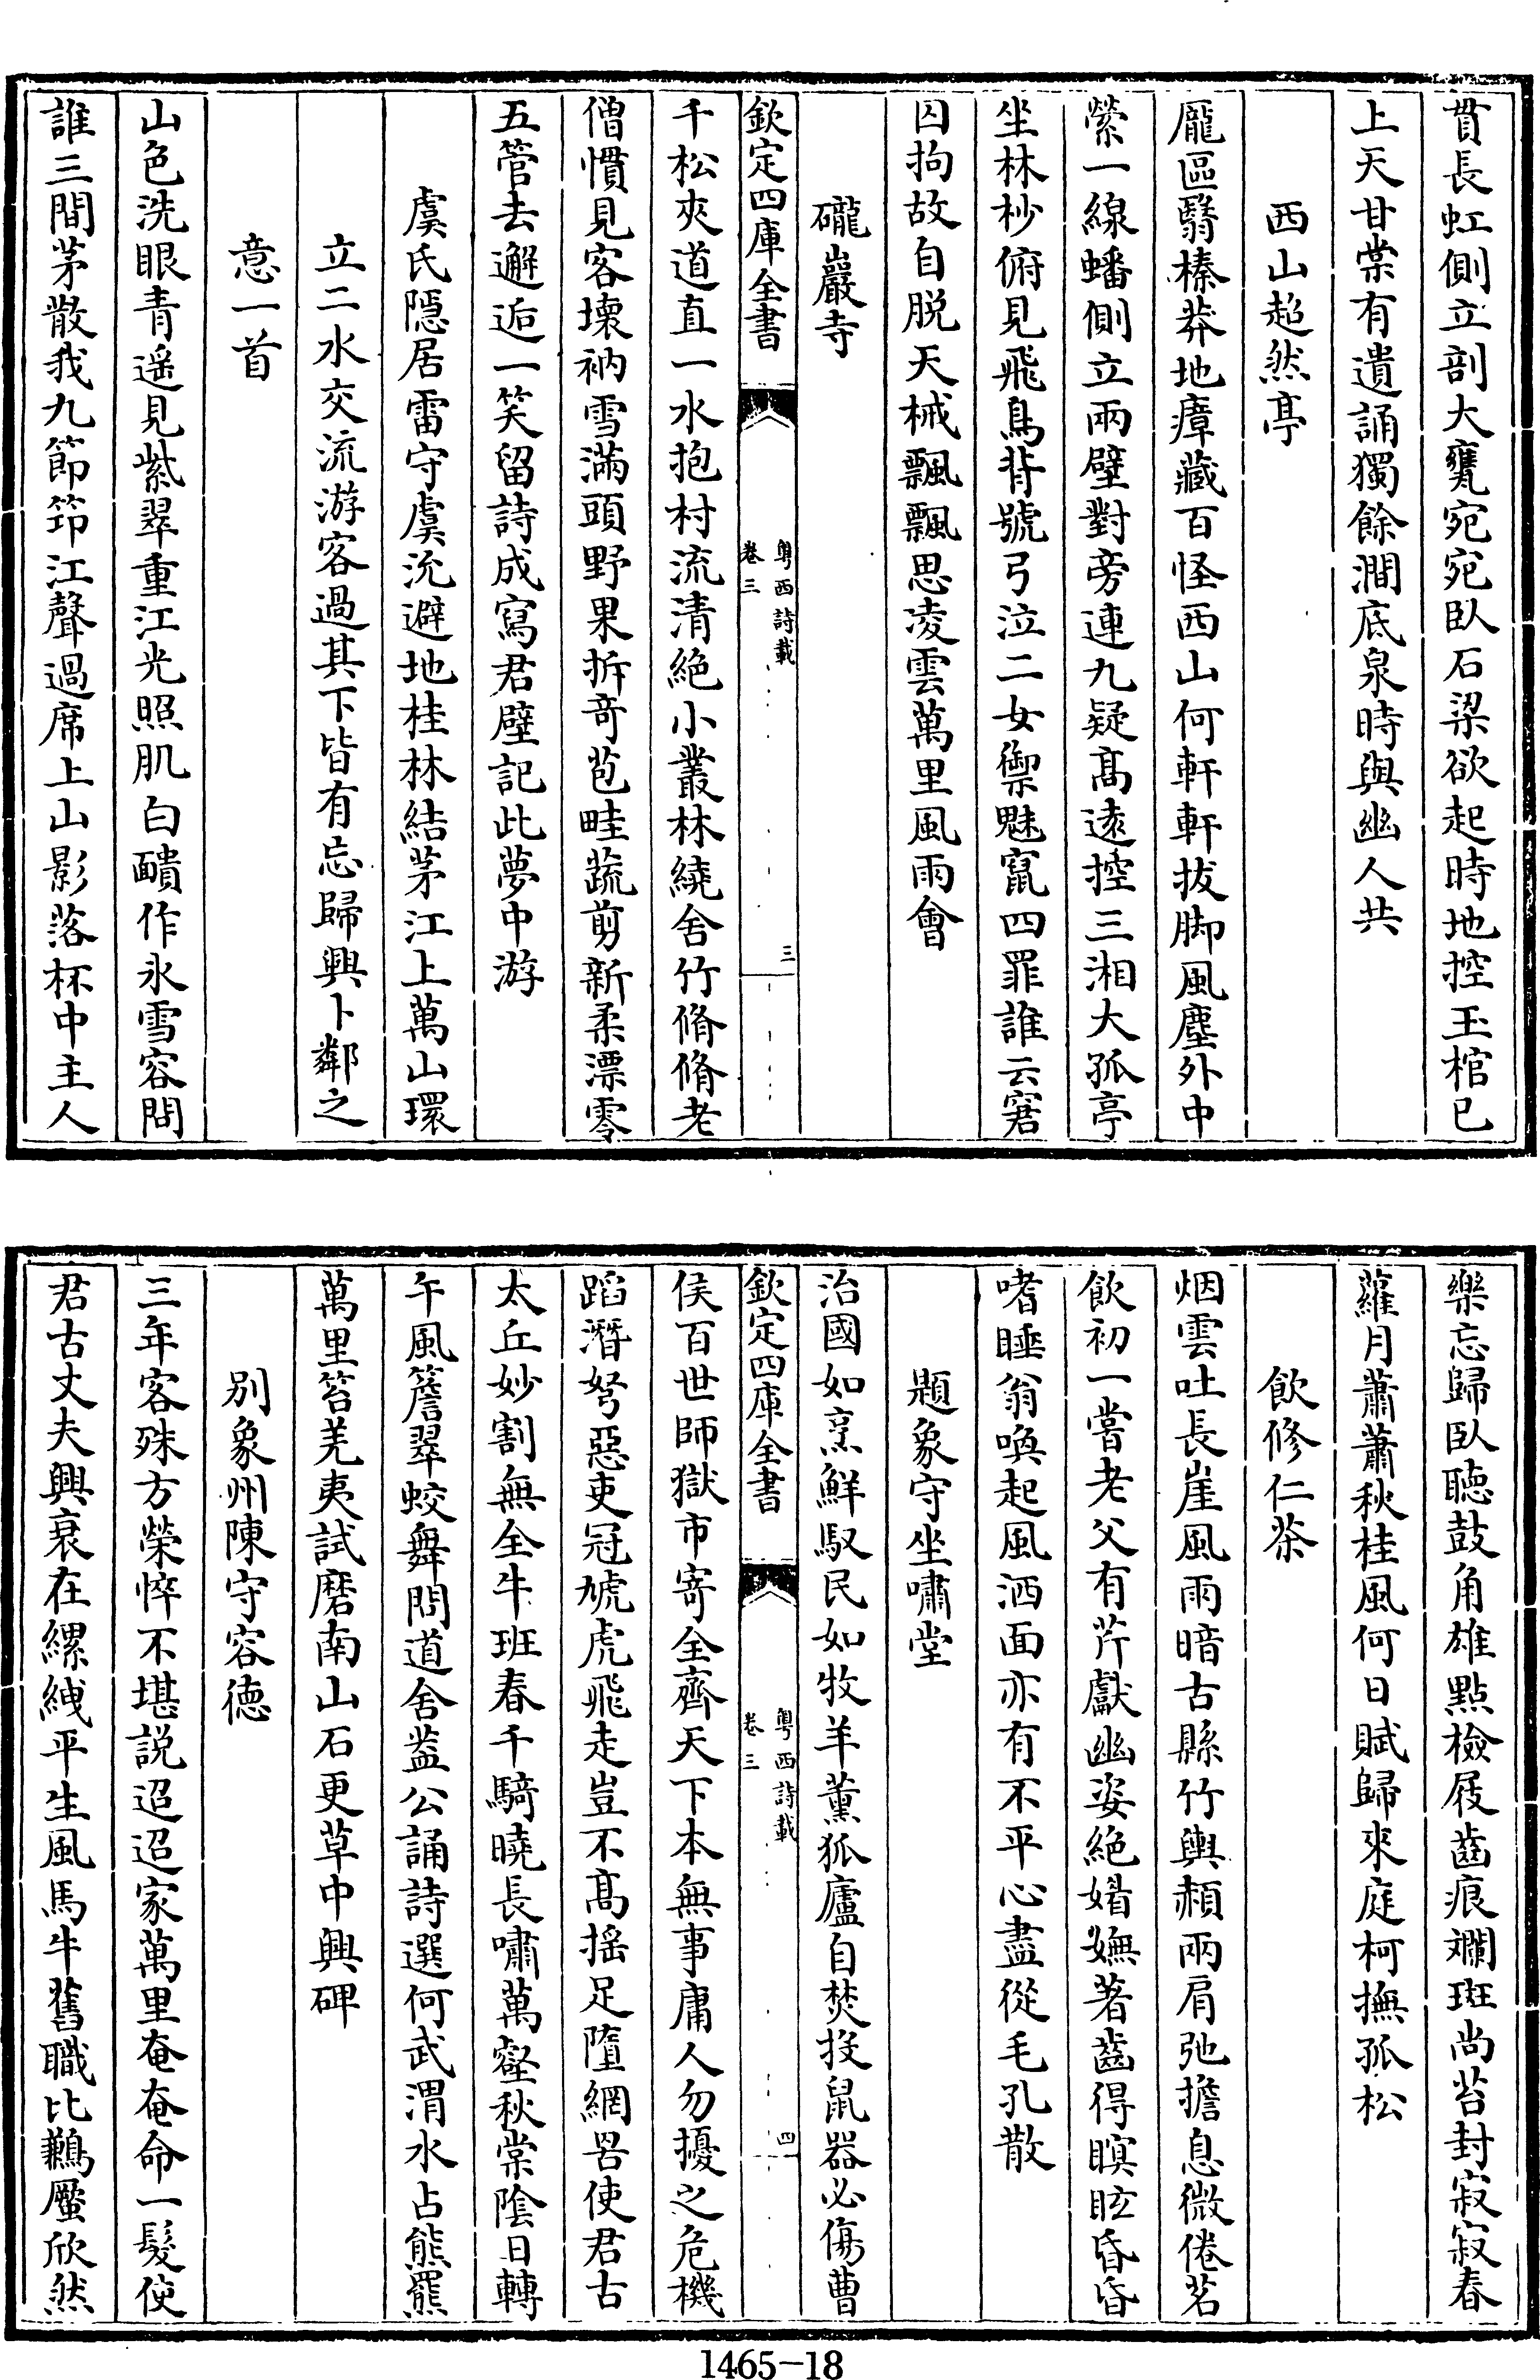 貫長虹側立剖大甕宛宛臥石梁欲起時地控王棺已
上天甘棠有遺誦獨餘澗底泉時與幽人共
西山超然亭
龎區翳榛莽地瘴藏百怪西山何軒軒拔脚風塵外中
縈一線蟠側立兩壁對旁連九疑髙遠控三湘大孤亭
坐林杪俯見飛鳥背號弓泣二女禦魅竄四罪誰云窘
囚拘故自脱天械飄飄思凌雲萬里風雨會
礲巖寺
欽定四庫全書
粤西詩載
卷三
三
千松夾道直一水抱村流清絶小叢林繞舍竹脩脩老
僧慣見客壊衲雪滿頭野果拆竒苞畦蔬剪新柔漂零
五管去邂逅一笑留詩成寫君壁記此夢中游
虞氏隱居雷守虞沇避地桂林結茅江上萬山環
立二水交流游客過其下皆有忘歸興卜鄰之
意一首
山色洗眼青遥見紫翠重江光照肌白靧作氷雪容問
誰三間茅散我九節笻江聲過席上山影落杯中主人
樂忘歸臥聽鼓角雄點檢屐齒痕斕斑尚苔封寂寂春
蘿月蕭蕭秋桂風何日賦歸來庭柯撫孤松
飲修仁茶
烟雲吐長崖風雨暗古縣竹輿頳兩肩弛擔息微倦茗
飲初一嘗老父有芹獻幽姿絶媌嫵著齒得瞑眩昏昏
嗜睡翁喚起風洒面亦有不平心盡從毛孔散
題象守坐嘯堂
治國如烹鮮馭民如牧羊薫狐廬自焚投鼠器必傷曹
欽定四庫全書
粤西詩載
卷三
四
侯百世師獄市寄全齊天下本無事庸人勿擾之危機
蹈潛弩惡吏冠虓虎飛走豈不髙揺足墮網罟使君古
太丘妙割無全牛班春千騎曉長嘯萬壑秋棠隂日轉
午風簷翠蛟舞問道舍葢公誦詩選何武渭水占熊羆
萬里笞羌夷試磨南山石更草中興碑
别象州陳守容徳
三年客殊方榮悴不堪説迢迢家萬里奄奄命一髮使
君古丈夫興哀在縲絏平生風馬牛舊職比鶼蟨欣然
1465-18